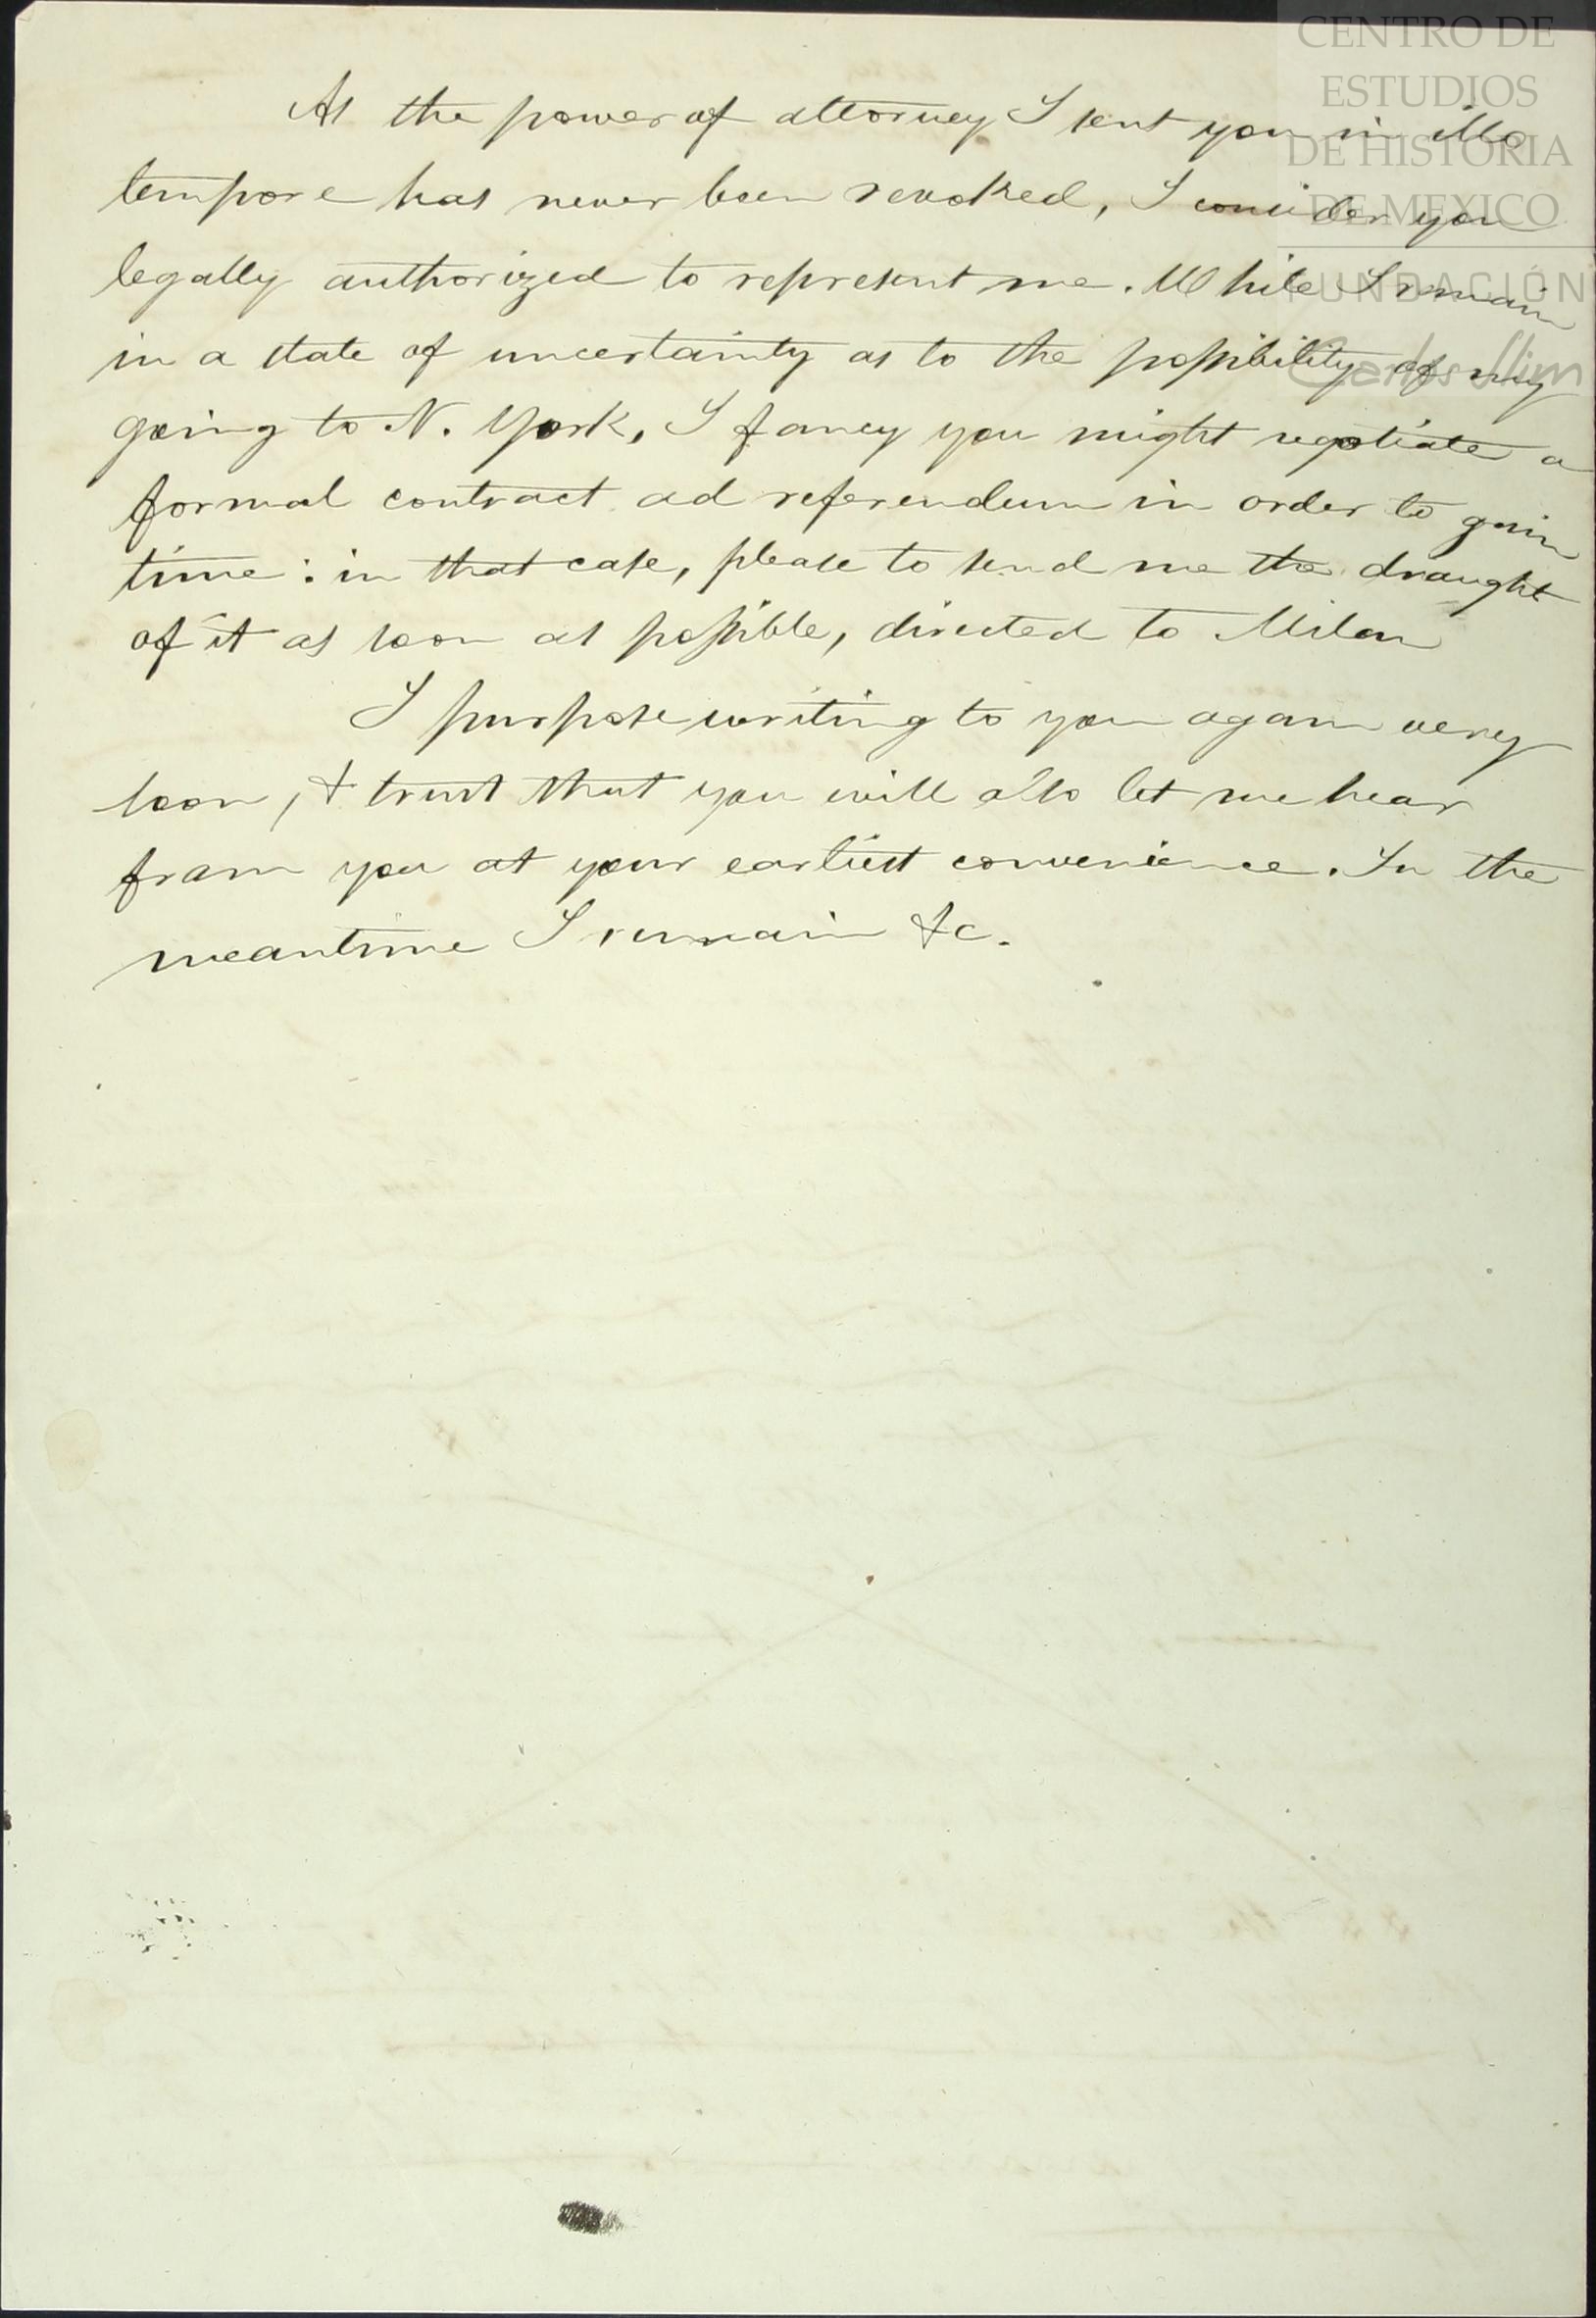 As the power of attorney I sent you in illo
tempore has never been revoked, I consider you
legally authorized to represent me. While I remain
in a state of uncertainty as to the possibility of my
going to N. York, I fancy you might negotiate a
formal contract ad referendum in order to gain
time: in that case, please to send me the draught
of it as soon as possible, directed to Milan
I purpose writing to you again very
soon, & trust that you will also let me hear
from you at your earliest convenience. In the
meantime I remain &c.
CENTRO DE
ESTUDIOS
DE HISTORIA
DE MEXICO
FUNDACIÓN
Carlos Slim